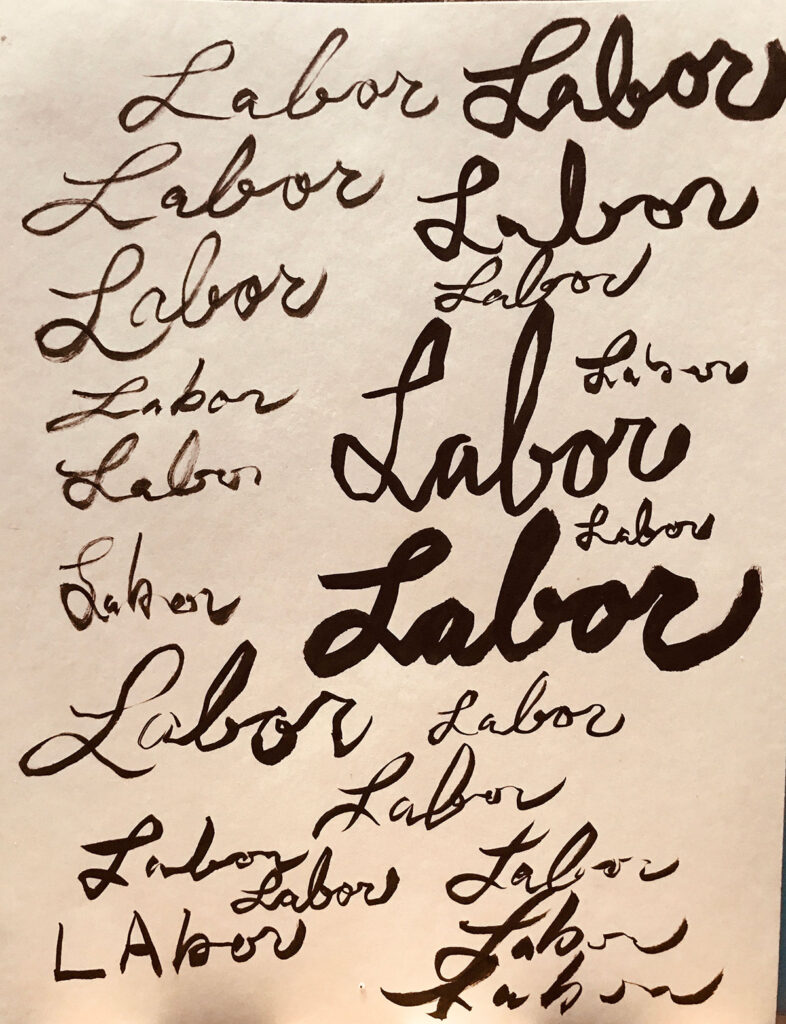 Labor Labor
Labor Labor
Labor Labor
Labor Labor
Labor Labor
Labor Labor
Labor Labor
Labor Labor
Labor
Labor Labor
Labor
LAbor Labor
Labor